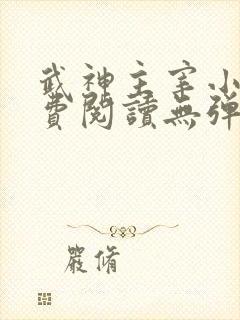 武神主宰小
費閱讀無彈
嚴脩